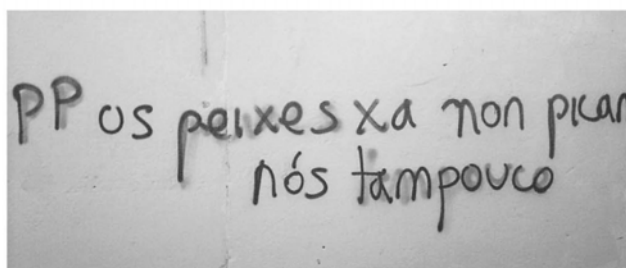 PP os peixes xa non pican
nós tampouco